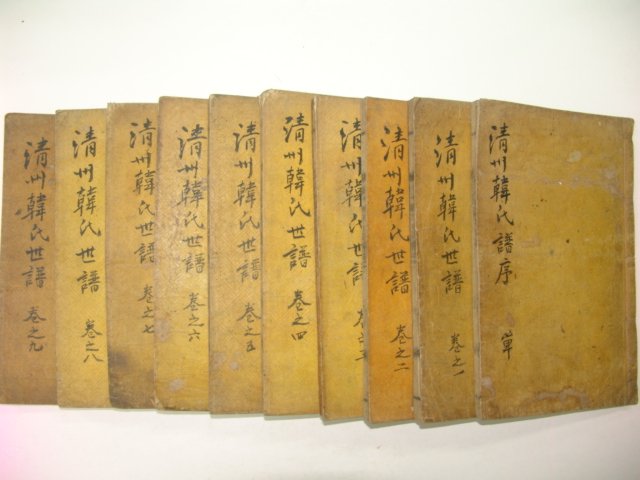 清州韓氏譜序 單
清州韓氏世譜 卷之一
清州韓氏世譜 卷之二
清州韓氏世譜 卷之三
清州韓氏世譜 卷之四
清州韓氏世譜 卷之五
清州韓氏世譜 卷之六
清州韓氏世譜 卷之七
清州韓氏世譜 卷之八
清州韓氏世譜 卷之九